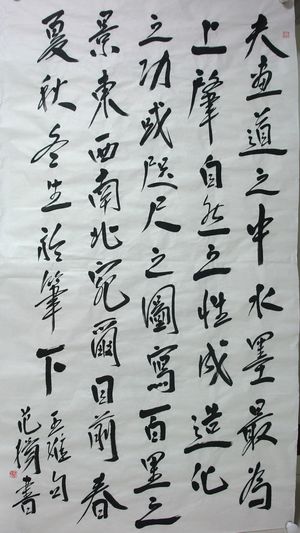 夫畫道之中水墨最為
上肇自然之性成造化
之功或咫尺之圖寫百里之
景東西南北宛爾目前春
夏秋冬生於筆下
王維句
范書